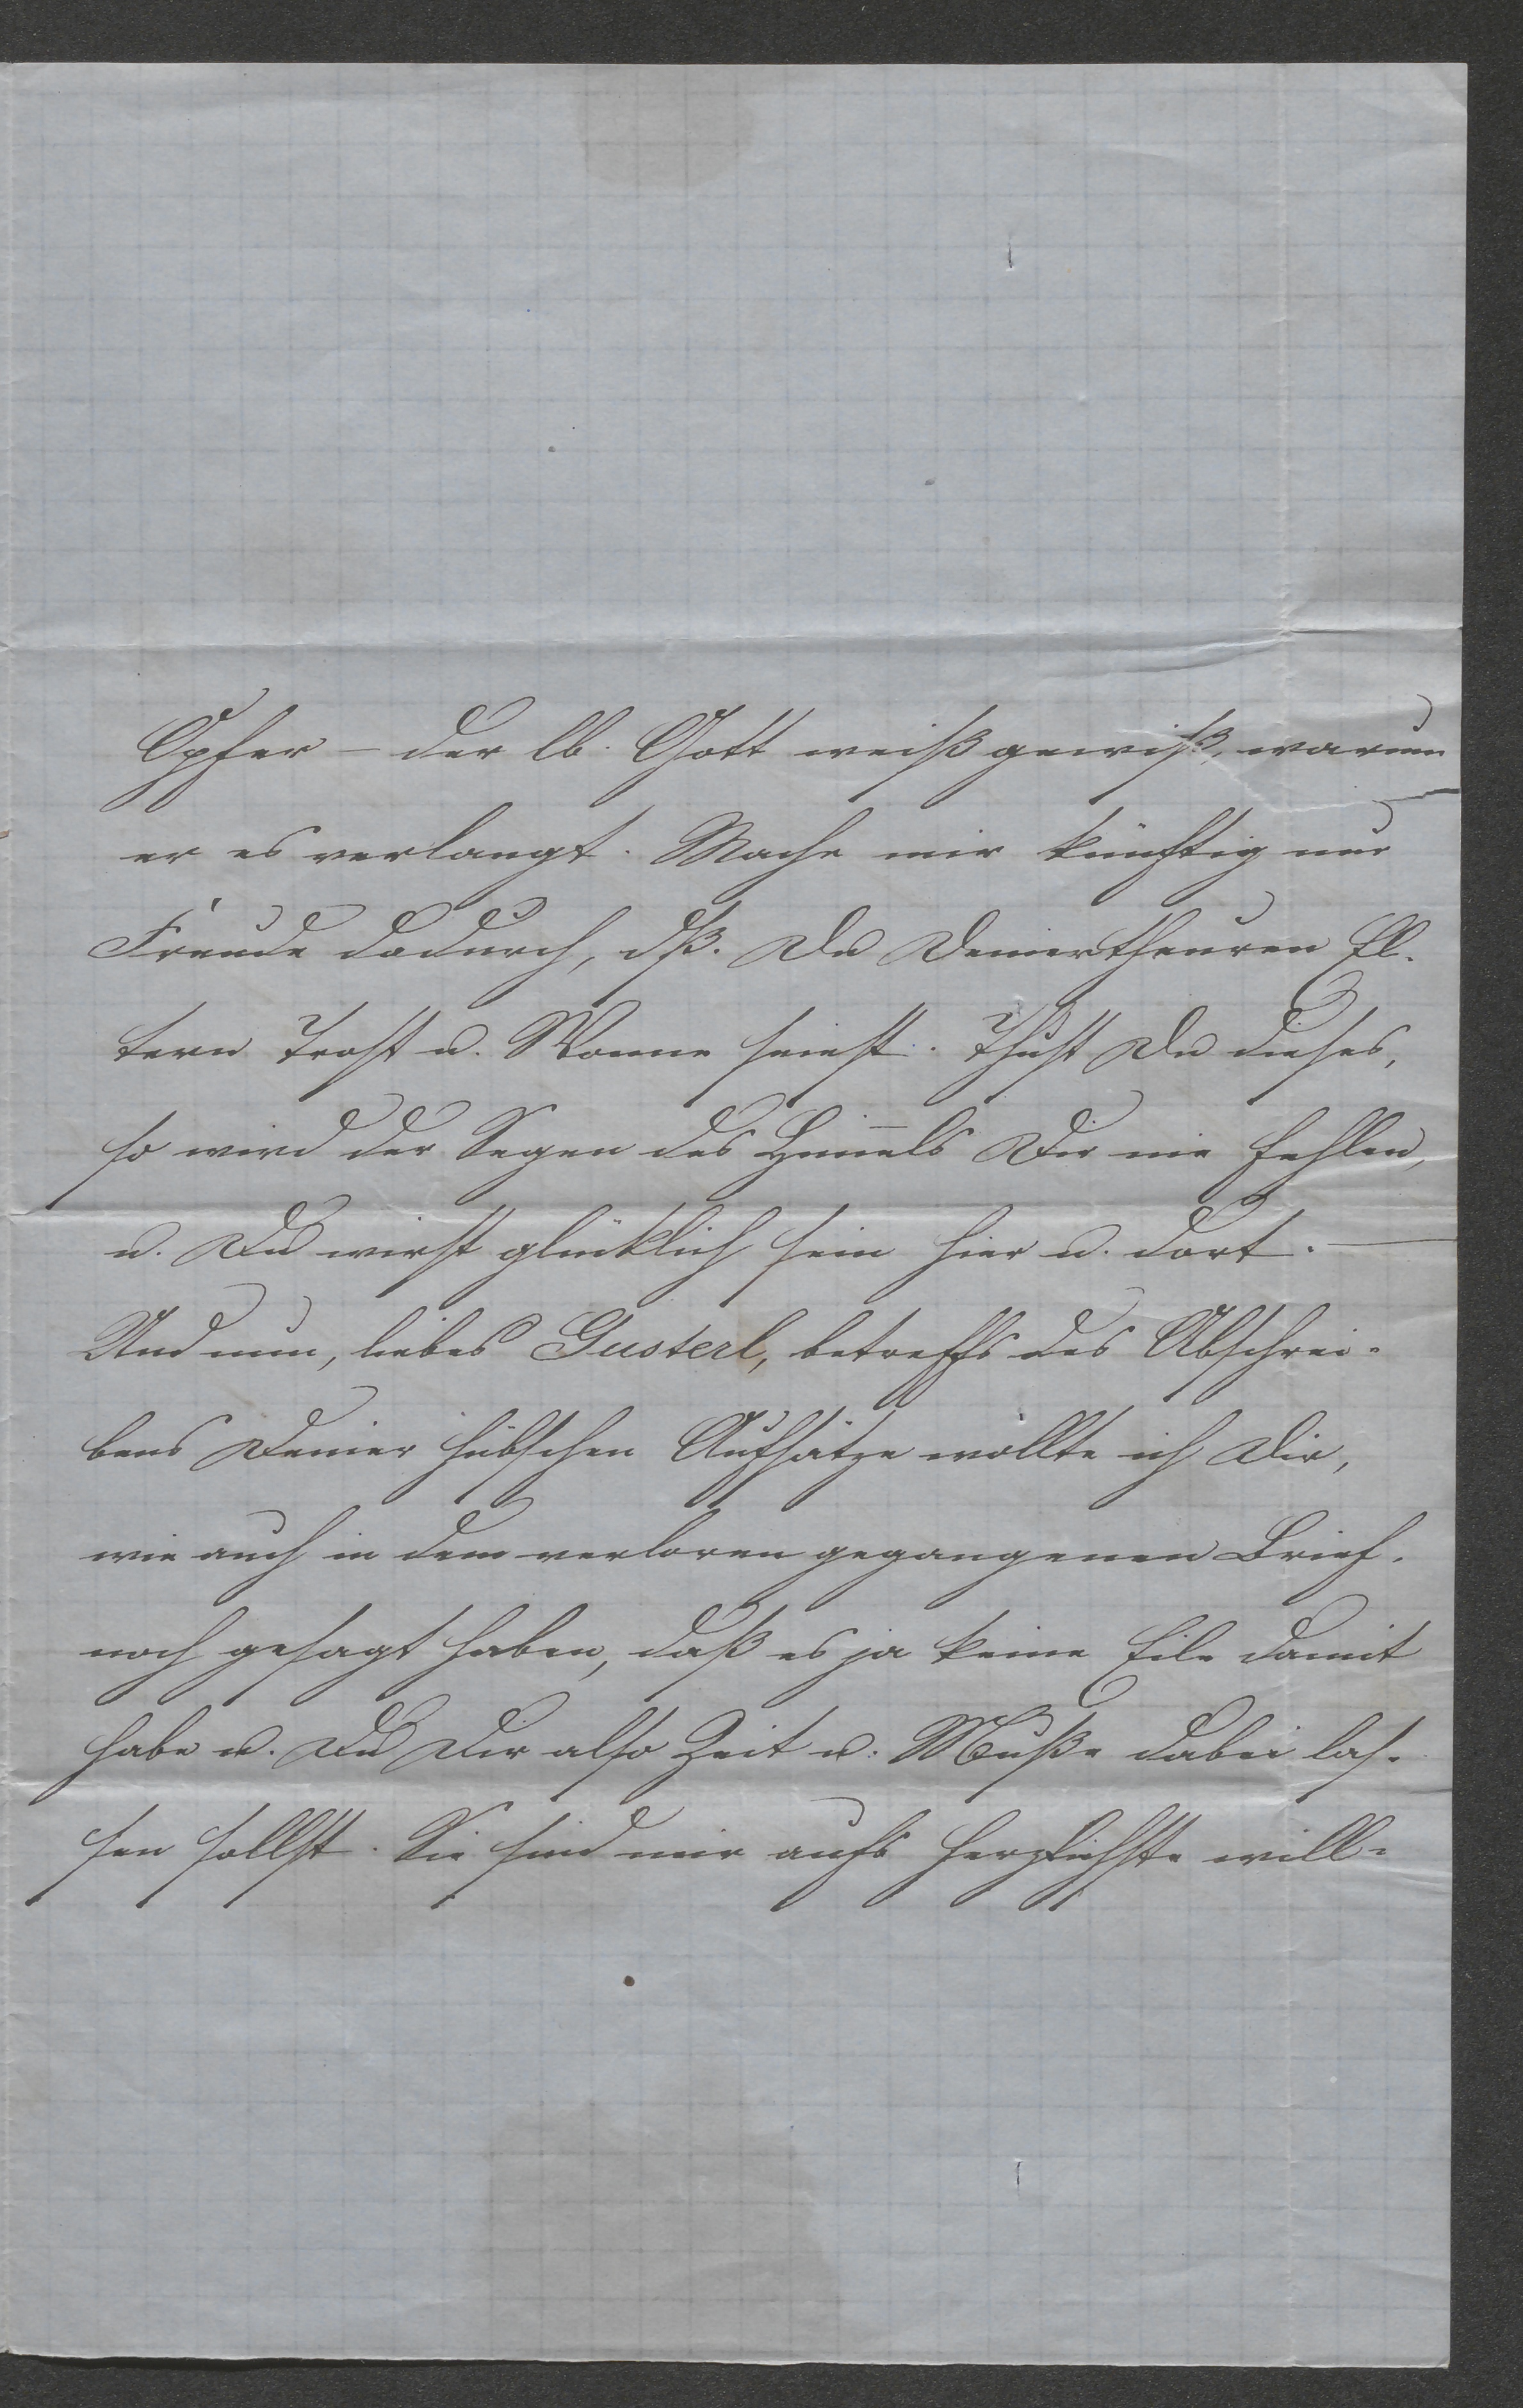 Opfer – der lb. Gott weiß gewiß, warum
er es verlangt. Mache mir künftig nur
Freude dadurch, dß. Du Deiner theuren El-
tern Trost u. Wonne seiest. Thust Du dieses,
so wird der Segen des Himels Dir nie fehlen,
u. Du wirst glücklich sein hier u. dort. –
Und nun, liebes Gusterl, betreffs des Abschrei-
bens Deiner hübschen Aufsätze wollte ich Dir,
wie auch in dem verloren gegangenen Brief.
noch gesagt haben, daß es ja keine Eile damit
habe u. Du Dir also Zeit u. Muße dabei las-
sen sollst. Sie sind mir aufs herzlichste will-